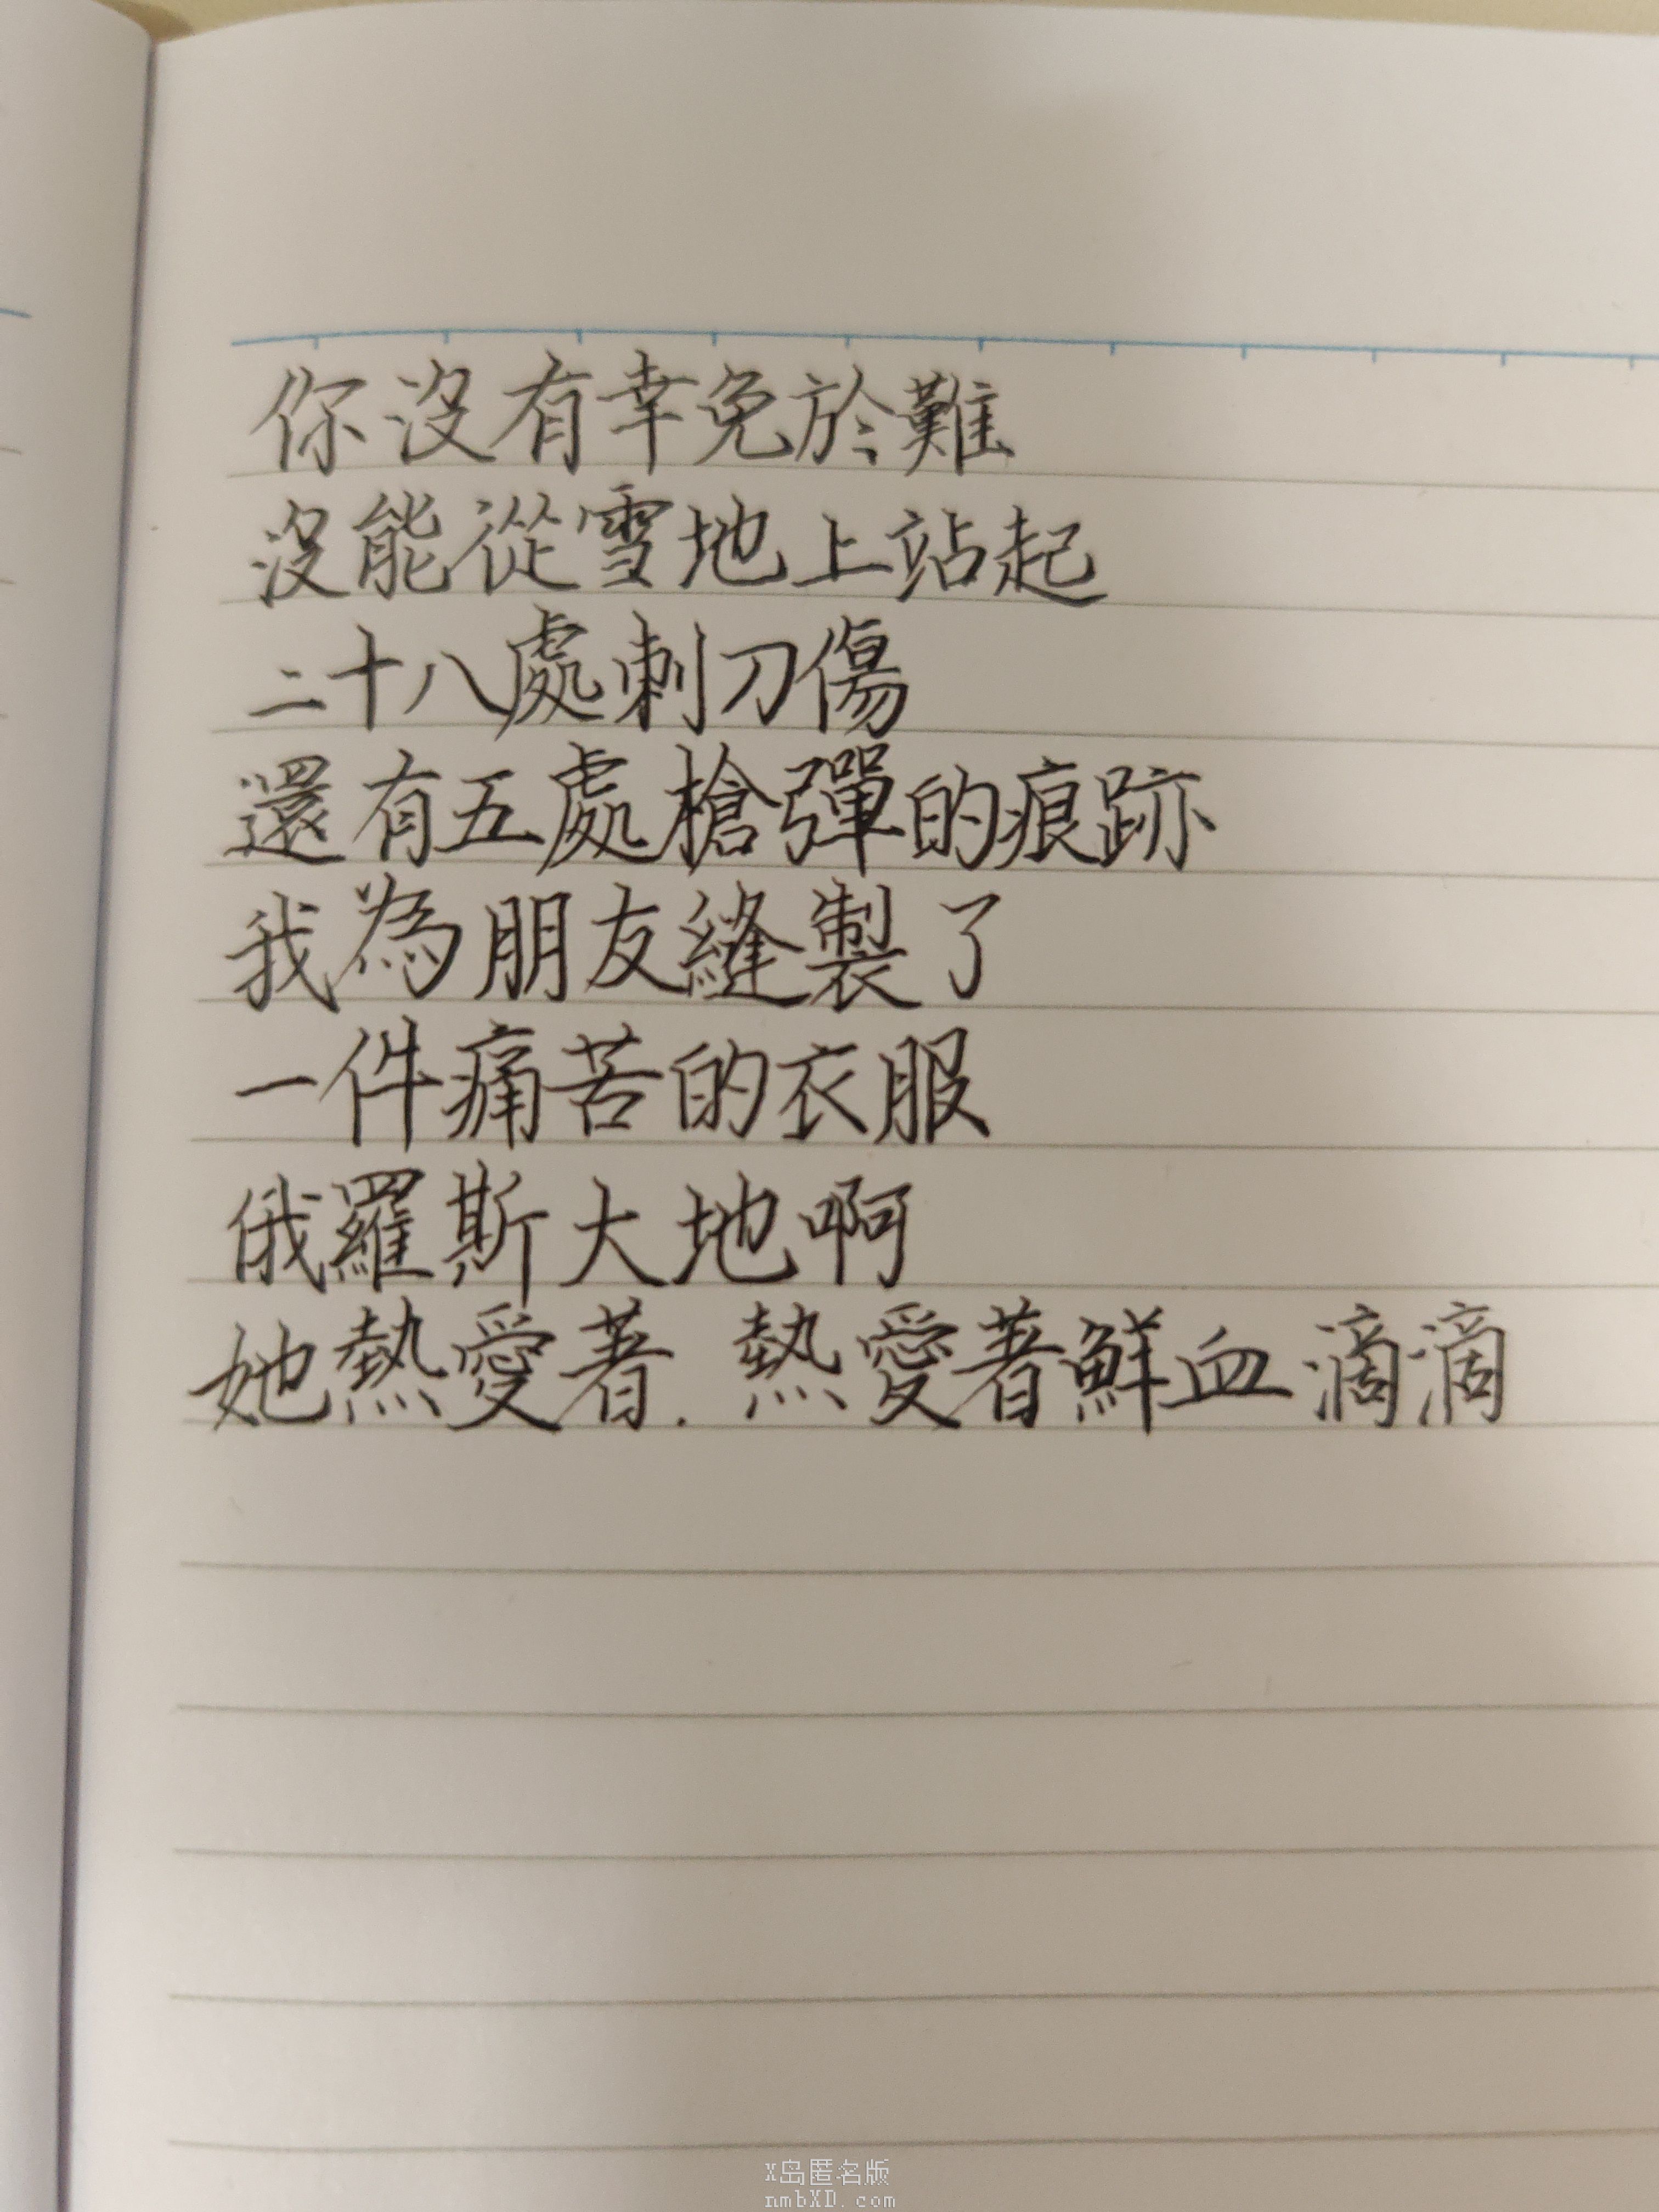 你沒有幸免於難
沒能從雪地上站起
二十八處刺刀傷
還有五處槍彈的痕跡
我為朋友縫製了
一件痛苦的衣服
俄羅斯大地啊
她熱愛著.熱愛著鮮血滴滴
X岛匿名版
nmbXD.com